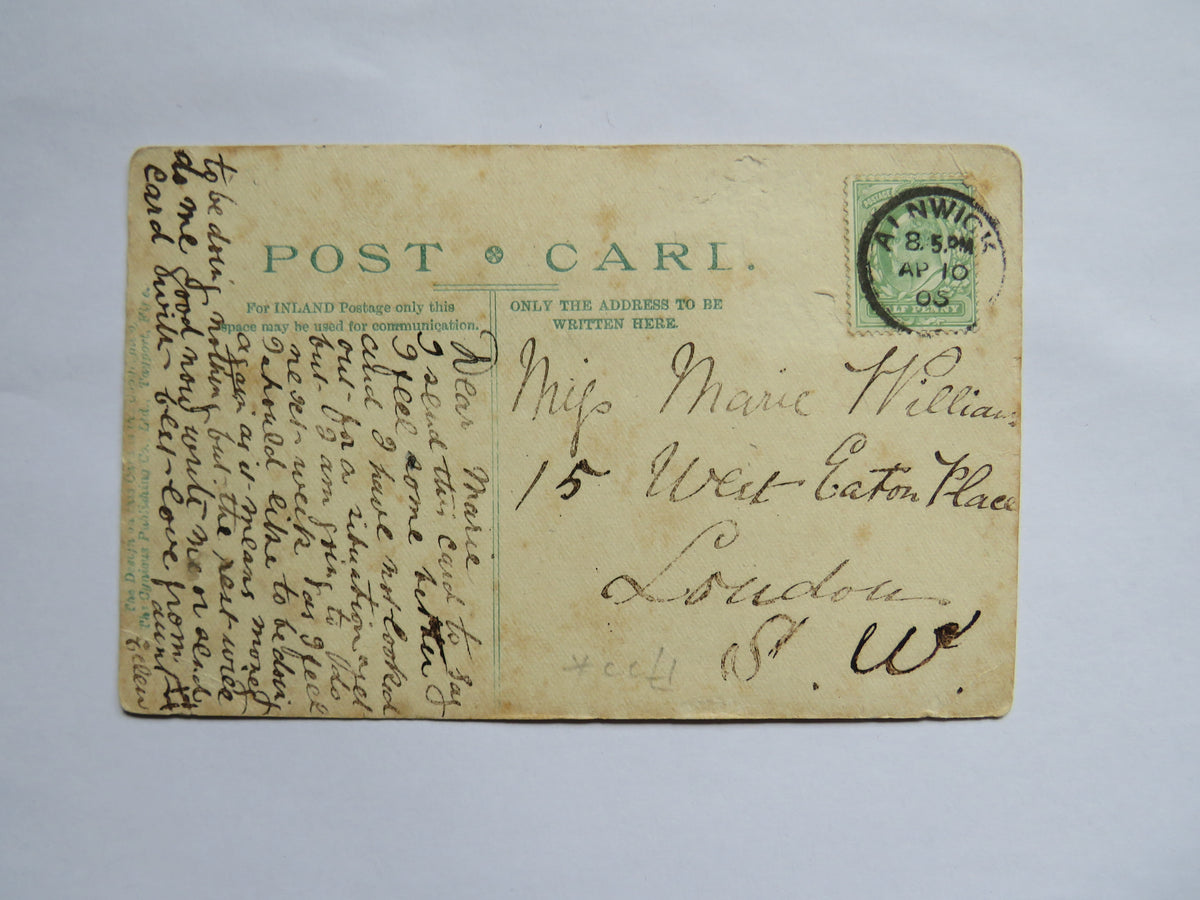 POST CARD.
For INLAND Postage only this
space may be used for communication.
ONLY THE ADDRESS TO BE
WRITTEN HERE.
POSTAGE
LF PENNY
ALNWICK
8.5.PM
AP 10
05
Miss Marie William
15 West Eaton Place
London
S. W.
Dear Marie
I send this card to say
I feel some better
and I have not looked
out for a situation yet
but I am going to do
next week as I feel
I should like to be doing
again as it means money
to be doing nothing but the rest will
do me good now write me or send
card with best love from
aunt
Ellen